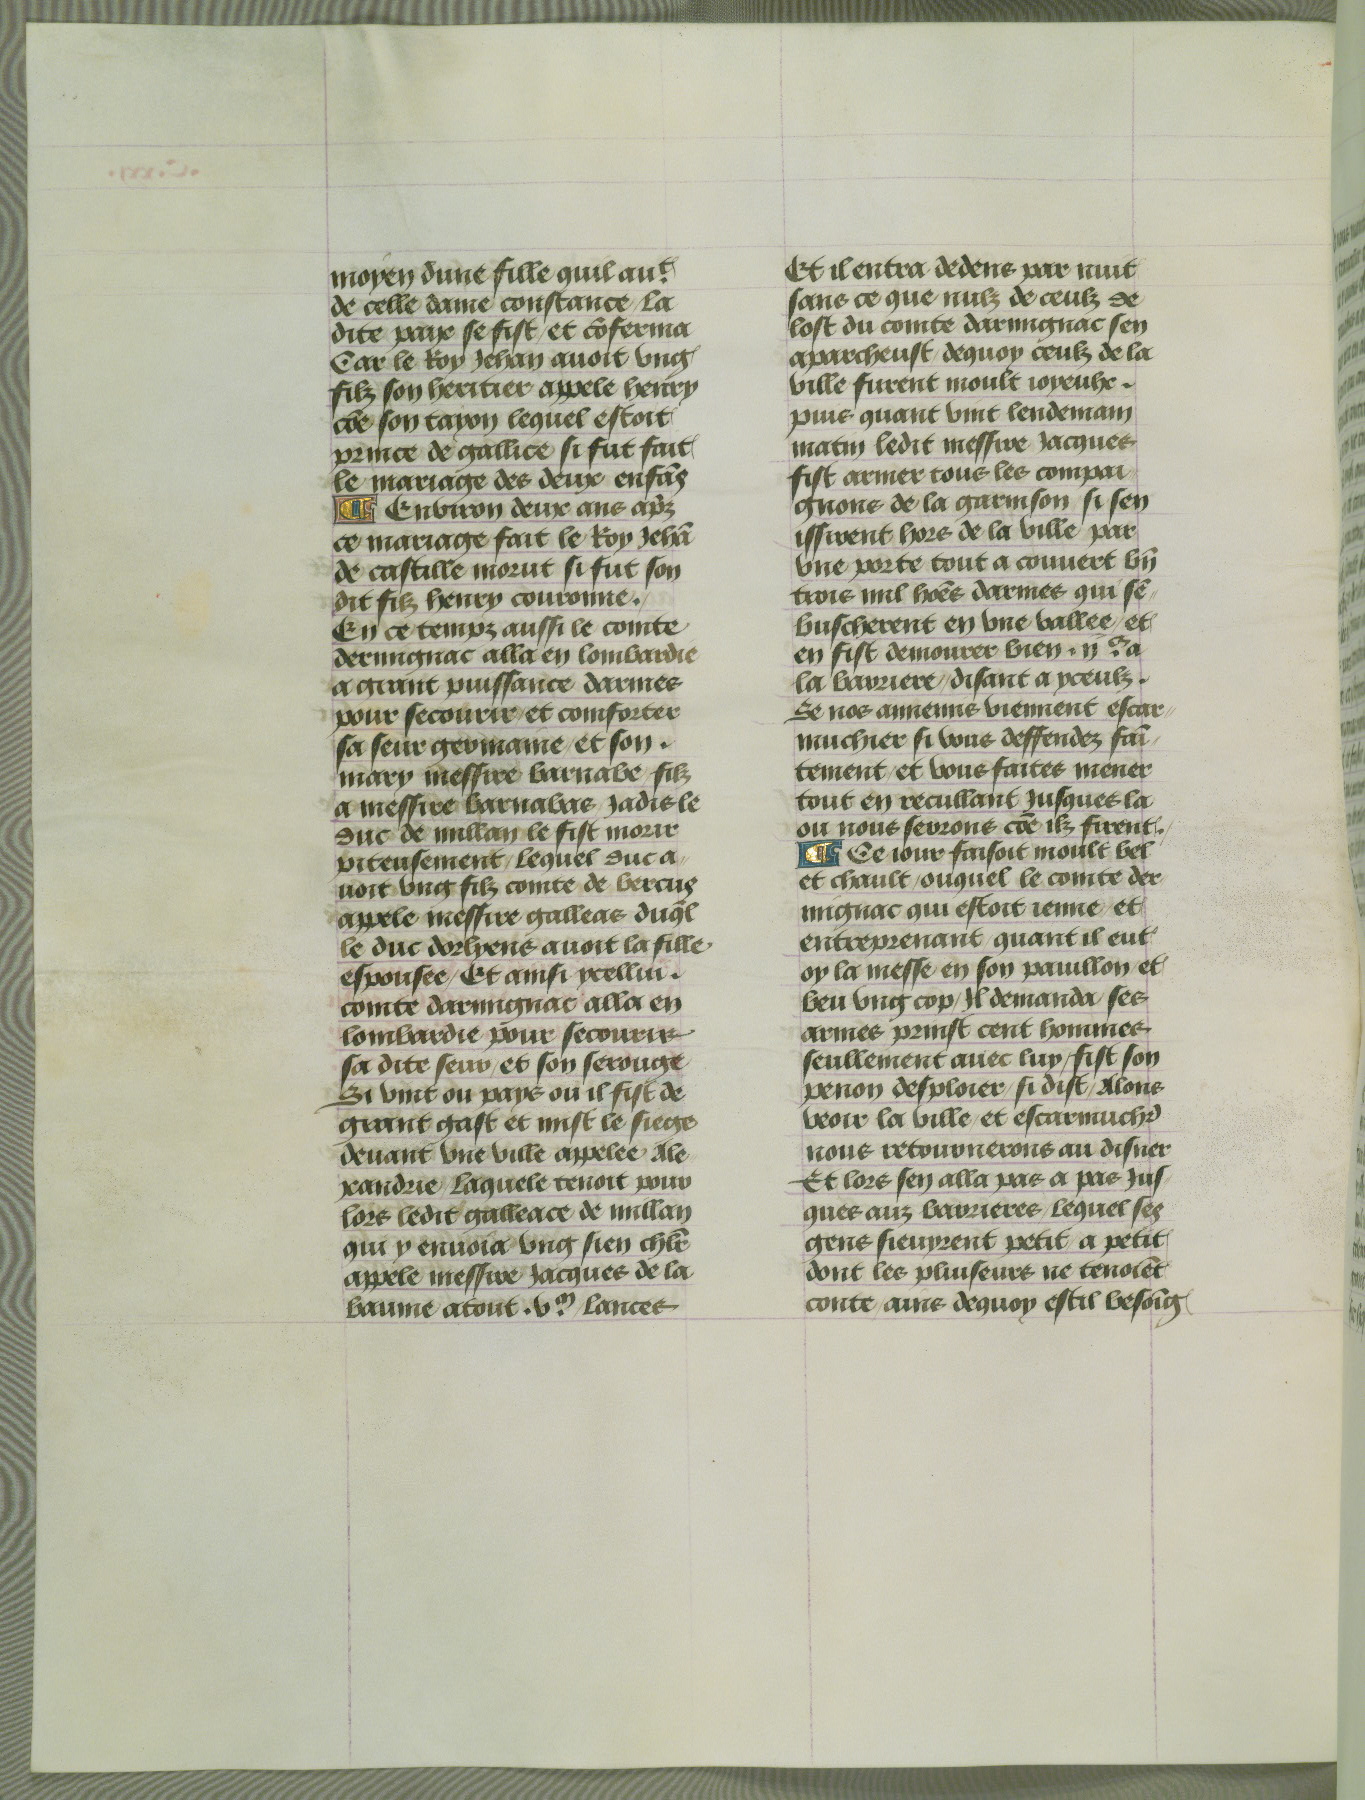 moyen dune fille quil aut
de celle dame constance / la
dite paix se fist / et cōferma
Car le Roy Jehan auoit vng
filz son heritier appele henry
cōe son tayon lequel estoit
prince de gallice si fut fait
le mariage des deux enfās
Enuiron deux ans apz
ce mariage fait le Roy Jehā
de castille morut si fut son
dit filz henry couronne.
En ce tempz aussi le comte
dermignac alla en lombardie
a grant puissance darmes
pour secourir et comforter
sa seur germaine et son .
mary messire barnabe / filz
a messire barnabas Jadis le
duc de millan le fist morir
piteusement / lequel duc a
uoit vng filz comte de vertus
appele messire galleas duql̄
le duc dorlyens auoit la fille
espousee / Et ainsi ycellui .
comte darmignac alla en
lombardie pour secourir
sa dite seur / et son serouge
Si vint ou pays ou il fist de
grant gast et mist le siege
deuant vne ville appelee Ale
xandrie / laquele tenoit pour
lors ledit galleace de millan
qui y enuoia vng sien chlr̄
appele messire Jacques de la
baume atout . v.ᶜ / lances
Et il entra dedens par nuit
sans ce que nulz de ceulz de
lost du comte darmignac sen
aparcheust / dequoy ceulz de la
ville furent moult ioyeulx .
puis quant vint lendemain
matin ledit messire Jacques
fist armer tous les compai
gnons de la garnison si sen
issirent hors de la ville par
vne porte tout a couuert bn̄
trois mil hōes darmes qui sē
buscherent en vne vallee / et
en fist demourer bien . ii.ᶜ a
la barriere / disant a yceulz .
Se nos annemis viennent escar
muchier si vous deffendez fai
tement / et vous faites mener
tout en recullant Jusques la
ou nous serons cōe ilz firent .
Ce iour faisoit moult bel
et chault / ouquel le comte der
mignac qui estoit ienne / et
entreprenant / quant il eut
oy la messe / en son pauillon / et
beu vng cop / Il demanda ses
armes prinst cent hommes
seullement auec luy / fist son
penon desploier / si dist / Alons
veoir la ville / et escarmuchr̄
nous retournerons au disner
Et lors sen alla pas a pas Jus
ques auz barrieres / lequel ses
gens sieuyrent petit a petit
dont les pluiseurs ne tenoiēt
conte / ains dequoy estil besōig